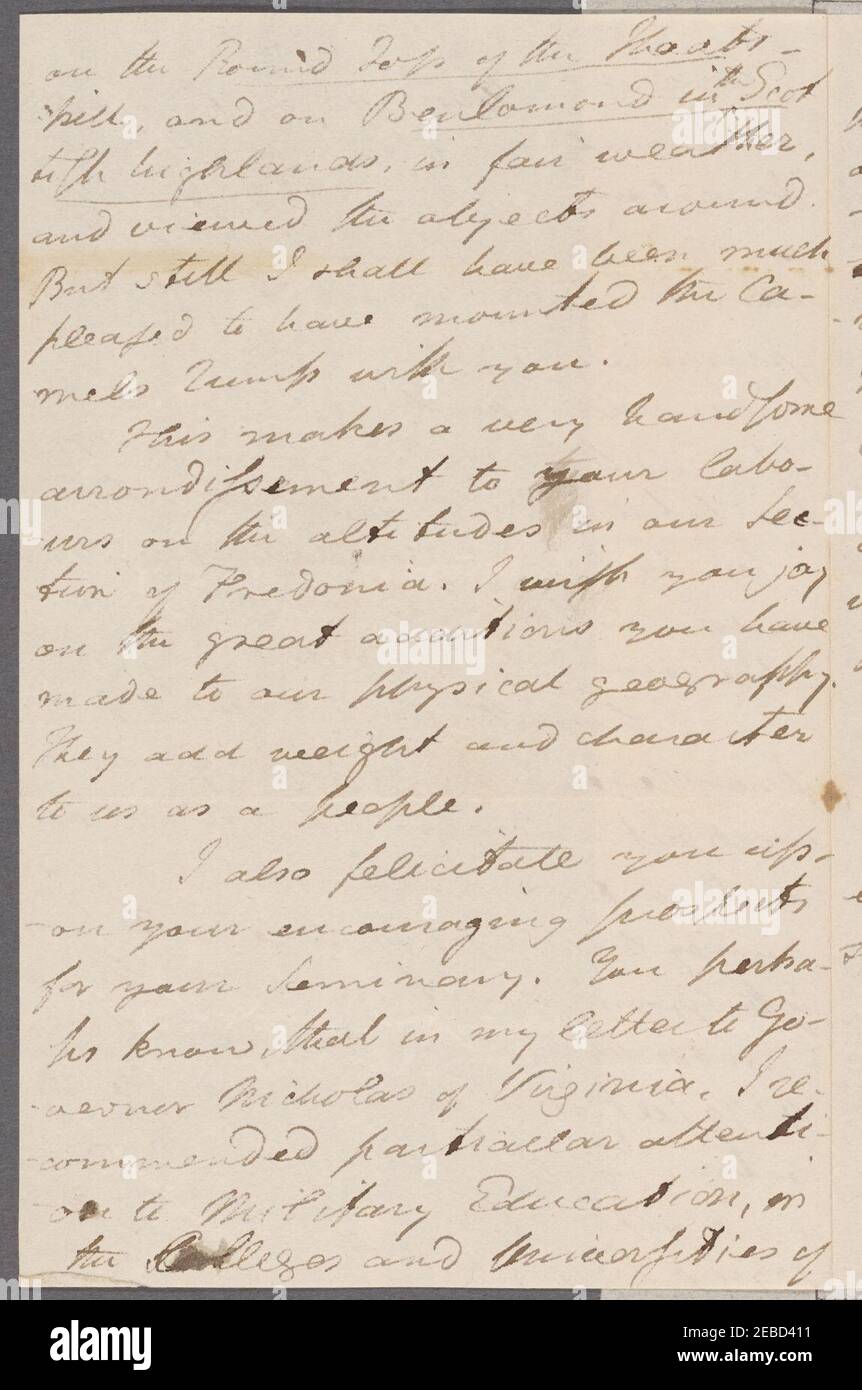 on the Round Top of the Kaats-
kill, and on Benlomond in the Scot
tish highlands, in fair weather,
and viewed the objects around.
But still I shall have been much
pleased to have mounted the Ca-
mels rump with you.
This makes a very handsome
arrondissement to your labo-
urs on the altitudes in our sec-
tion of Fredonia. I wish you joy
on the great additions you have
made to our physical geography.
They add weight and character
to us as a people.
I also felicitate you up-
on your encouraging prospects
for your Seminary. You perha-
ps know, that in my letter to Go-
vernor Nicholas of Virginia, I re-
commended particular attenti-
on to Military Education, in
the Colleges and Universities of
alamy
Image ID: 2EBD411
www.alamy.com